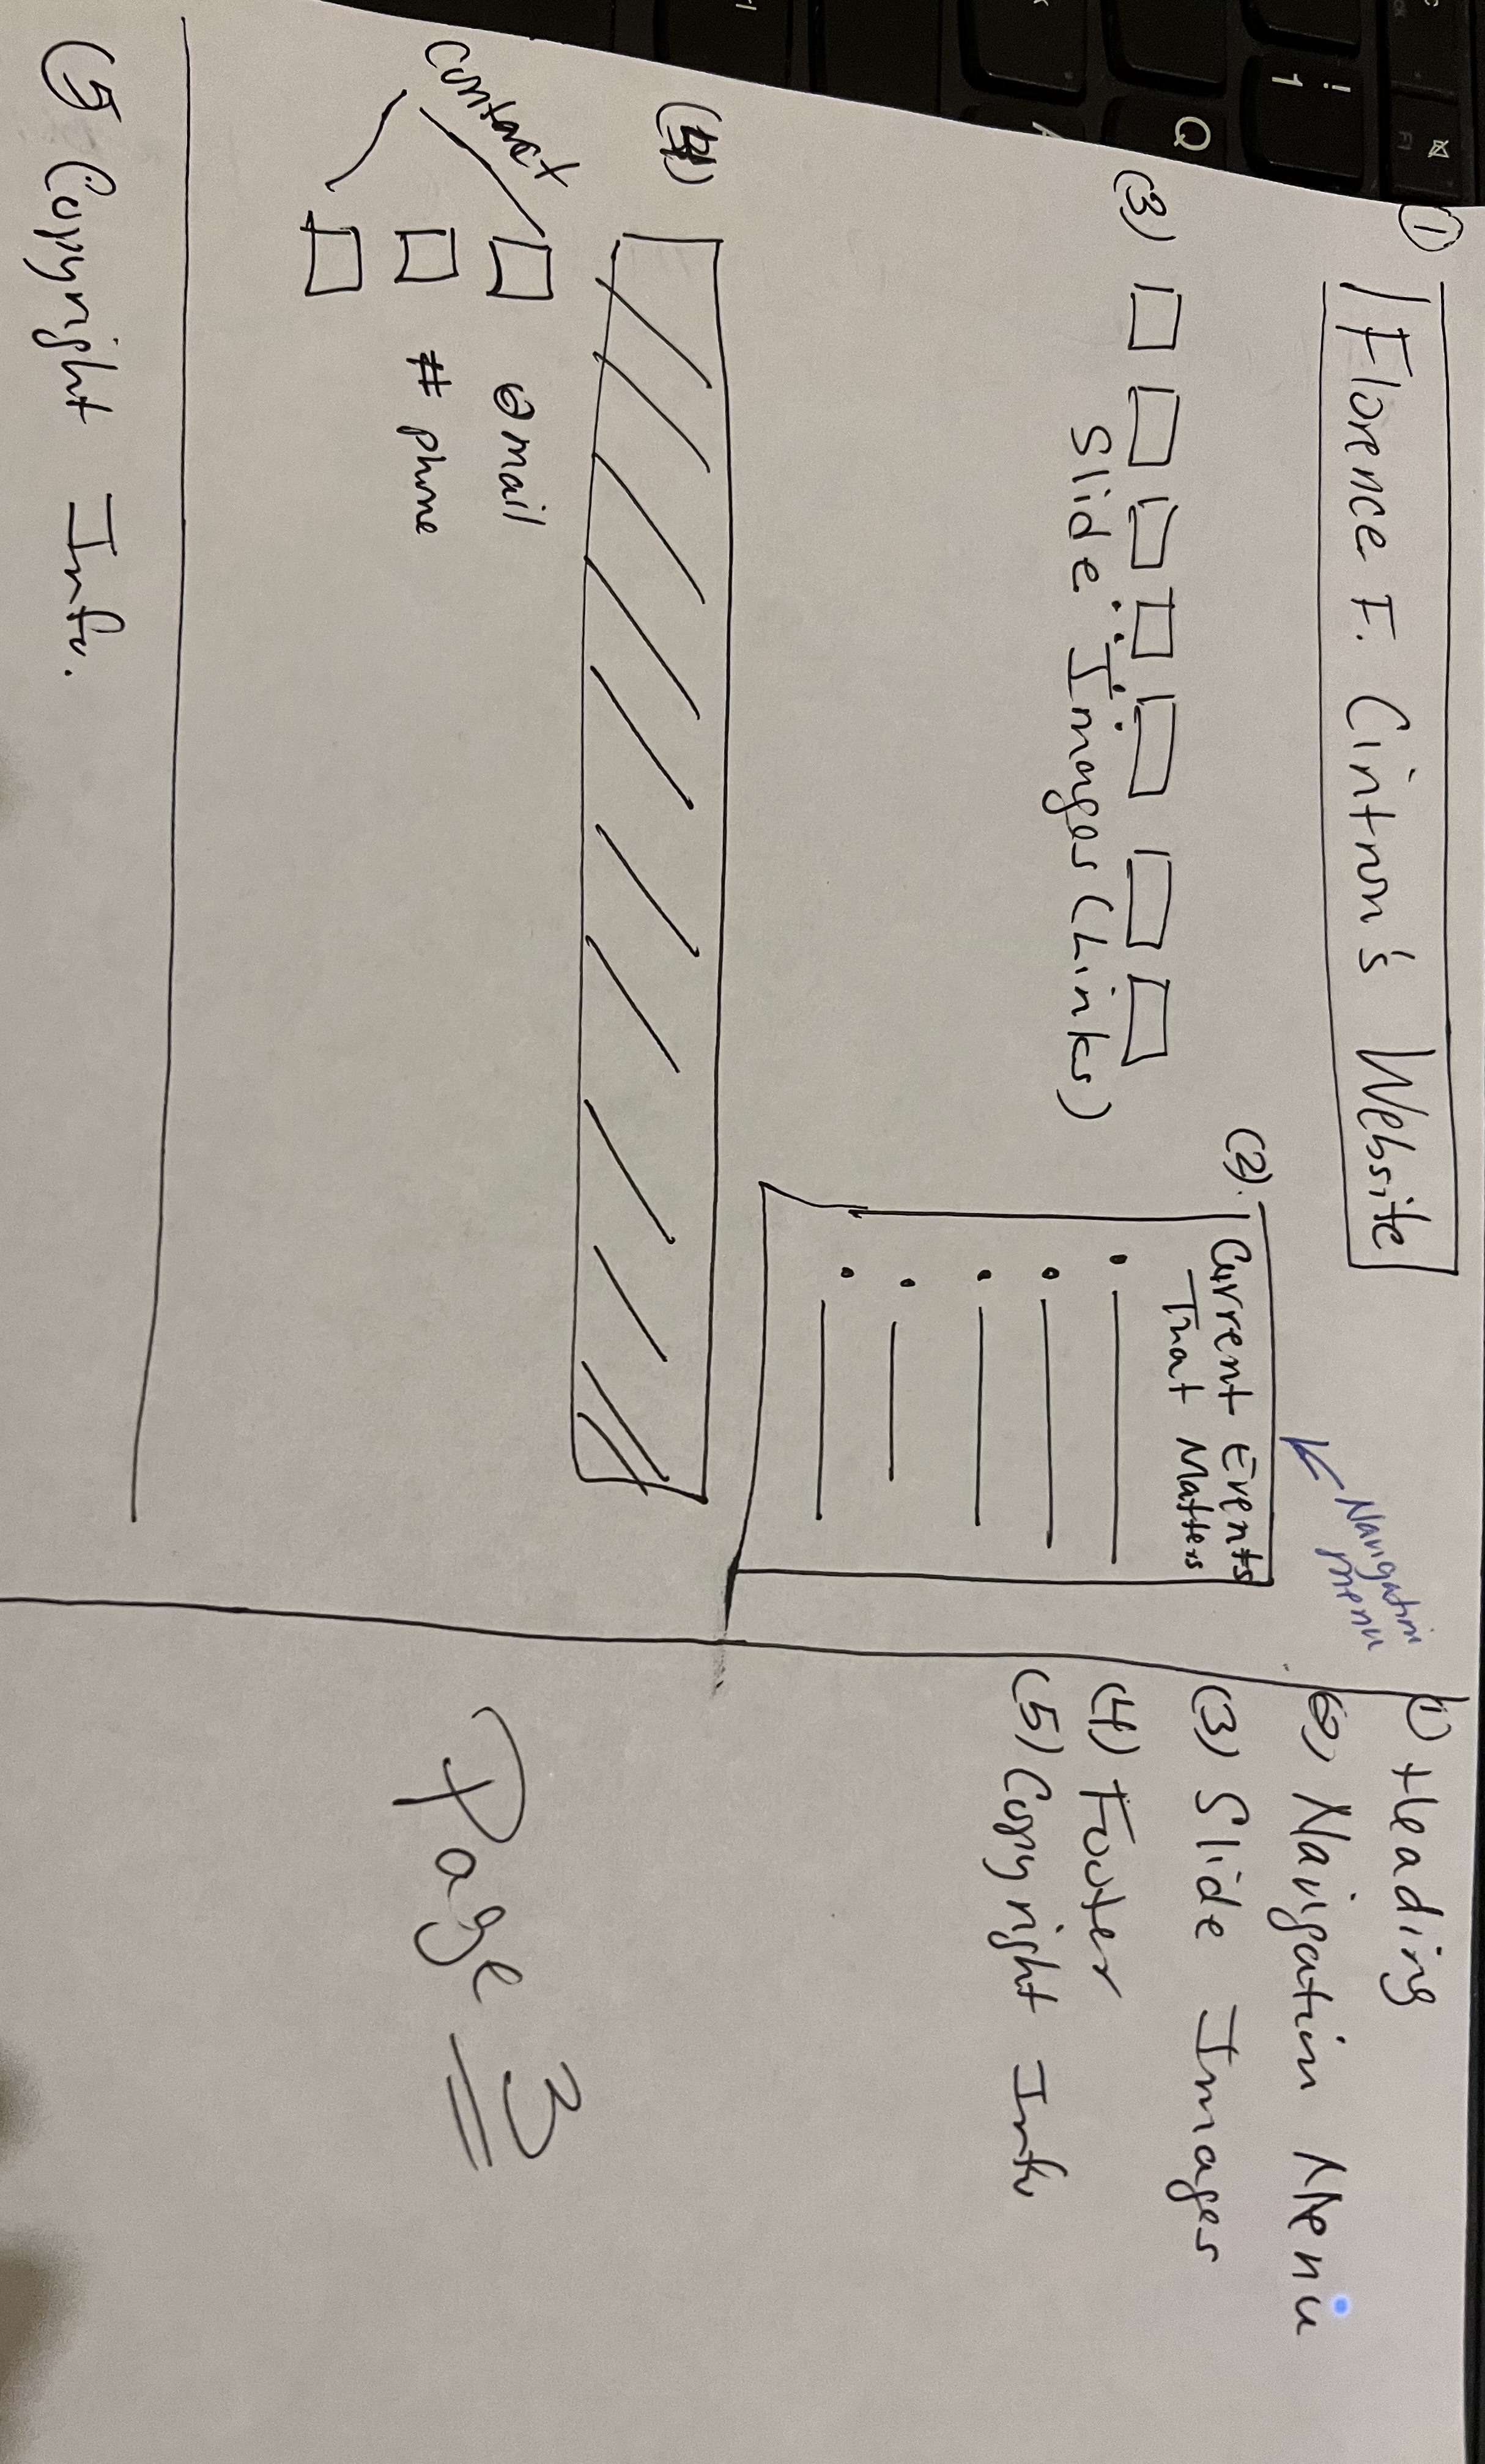 ① Florence F. Cintron's Website
Navigation
menu
(2).
Current Events
That Matters
(3)
Slide Images (Links)
(4)
Contact
@mail
# phone
(5 Copyright Info.
1) Heading
(2) Navigation Menu
(3) Slide Images
(4) Footer
(5) Copyright Info
Page 3
!
1
Q
F1